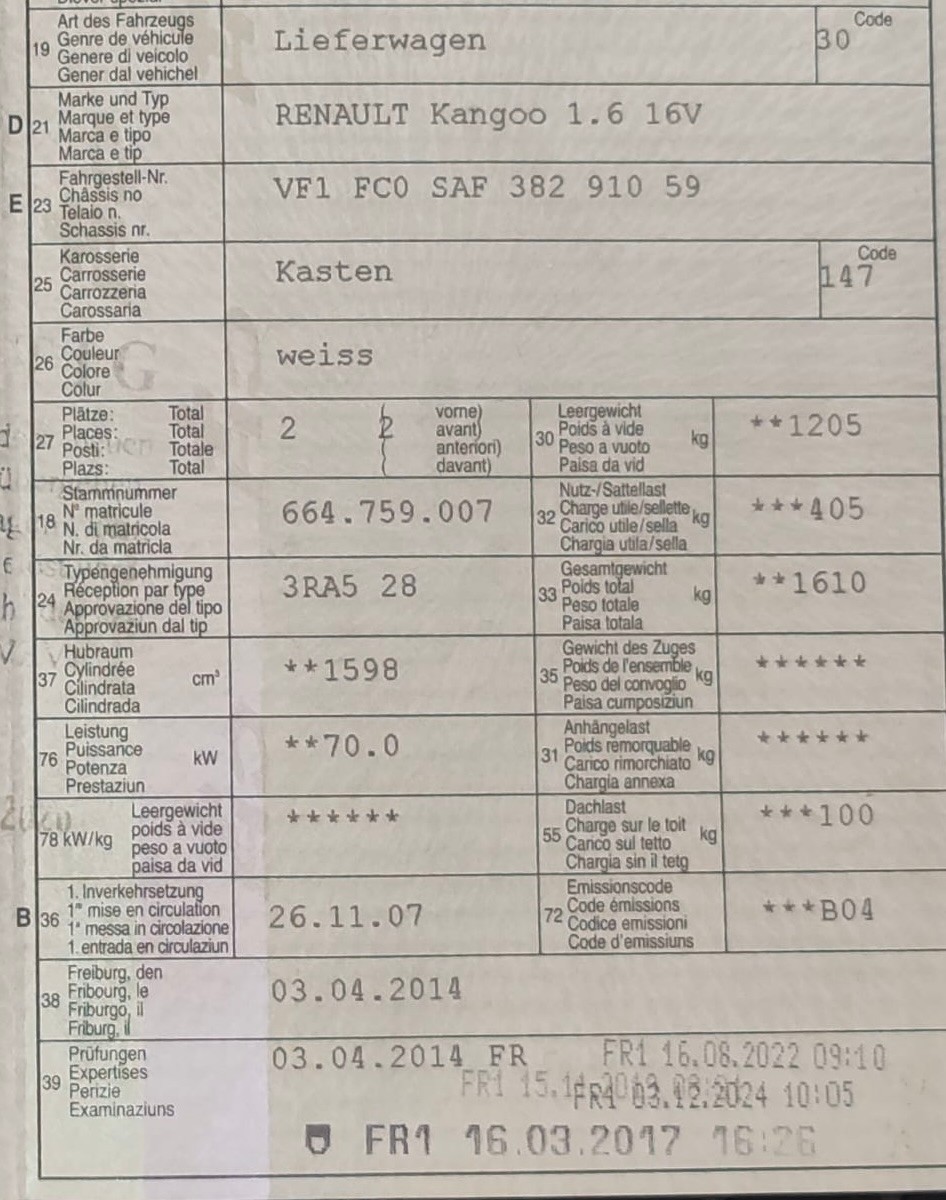 19 Art des Fahrzeugs
Genre de véhicule
Genere di veicolo
Gener dal vehichel
Lieferwagen
Code
30
D 21 Marke und Typ
Marque et type
Marca e tipo
Marca e tip
RENAULT Kangoo 1.6 16V
E 23 Fahrgestell-Nr.
Châssis no
Telaio n.
Schassis nr.
VF1 FC0 SAF 382 910 59
25 Karosserie
Carrosserie
Carrozzeria
Carossaria
Kasten
Code
147
26 Farbe
Couleur
Colore
Colur
weiss
27 Plätze: Total
Places: Total
Posti: Totale
Plazs: Total
2 ( 2 vorne)
avant)
anteriori)
davant)
30 Leergewicht
Poids à vide
Peso a vuoto
Paisa da vid
kg
**1205
18 Stammnummer
N° matricule
N. di matricola
Nr. da matricla
664.759.007
32 Nutz-/Sattellast
Charge utile/sellette
Carico utile/sella
Chargia utila/sella
kg
***405
24 Typengenehmigung
Réception par type
Approvazione del tipo
Approvaziun dal tip
3RA5 28
33 Gesamtgewicht
Poids total
Peso totale
Paisa totala
kg
**1610
37 Hubraum
Cylindrée
Cilindrata
Cilindrada
cm³
**1598
35 Gewicht des Zuges
Poids de l'ensemble
Peso del convoglio
Paisa cumposiziun
kg
******
76 Leistung
Puissance
Potenza
Prestaziun
kW
**70.0
31 Anhängelast
Poids remorquable
Carico rimorchiato
Chargia annexa
kg
******
78 kW/kg Leergewicht
poids à vide
peso a vuoto
paisa da vid
******
55 Dachlast
Charge sur le toit
Carico sul tetto
Chargia sin il tetg
kg
***100
B 36 1. Inverkehrsetzung
1re mise en circulation
1a messa in circolazione
1. entrada en circulaziun
26.11.07
72 Emissionscode
Code émissions
Codice emissioni
Code d'emissiuns
***B04
38 Freiburg, den
Fribourg, le
Friburgo, il
Friburg, il
03.04.2014
39 Prüfungen
Expertises
Perizie
Examinaziuns
03.04.2014 FR
FR1 16.08.2022 09:10
FR1 03.12.2024 10:05
FR1 16.03.2017 16:26